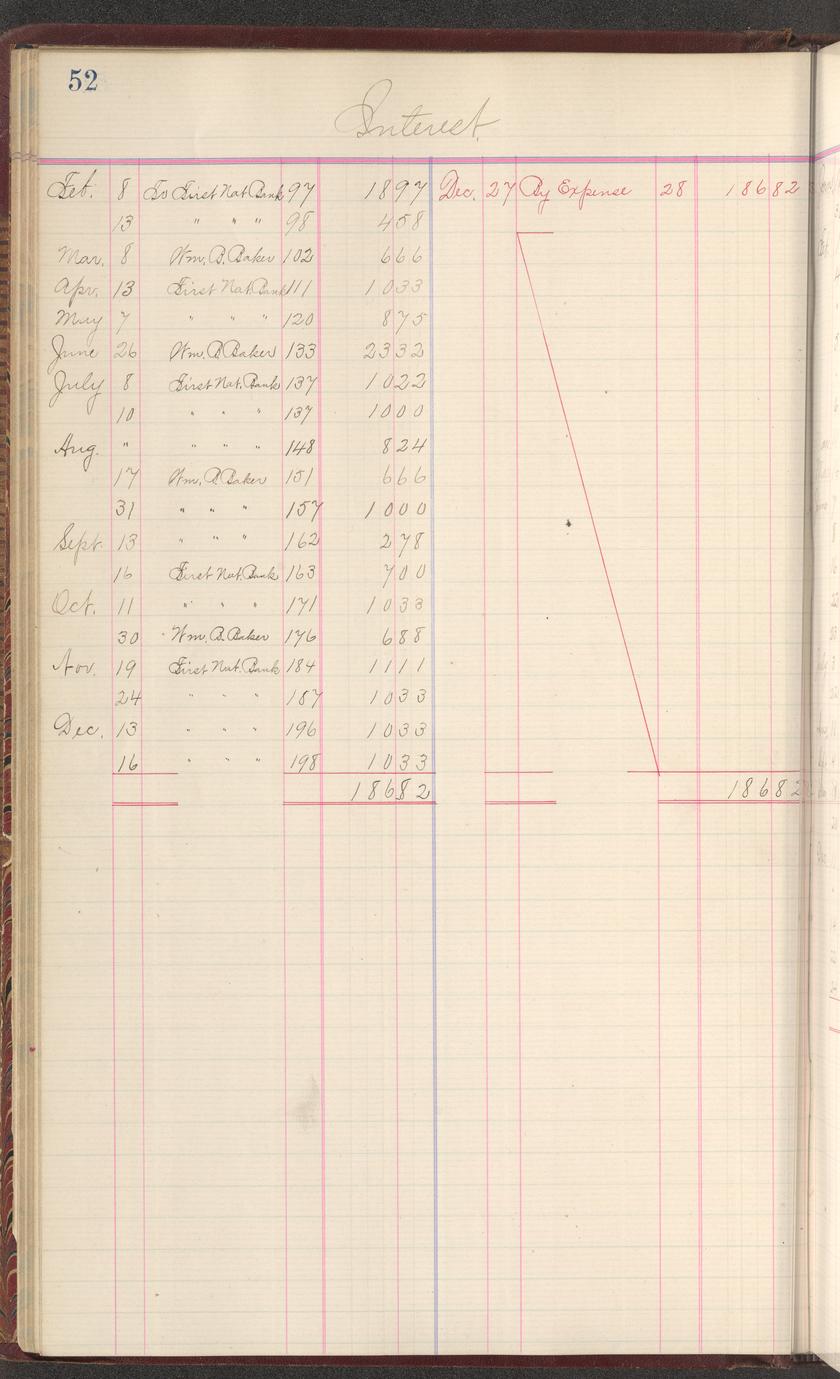 52
Interest.
Feb. 8 To First Nat Bank 97 1897 Dec. 27 By Expense 28 18682
13 " " " 98 458
Mar. 8 Wm. B. Baker 102 666
Apr. 13 First Nat. Bank 111 1033
May 7 " " " 120 875
June 26 Wm. B Baker 133 2332
July 8 First Nat. Bank 137 1022
10 " " " 137 1000
Aug. " " " " 148 824
17 Wm. B. Baker 151 666
31 " " " 157 1000
Sept. 13 " " " 162 278
16 First Nat. Bank 163 700
Oct. 11 " " " 171 1033
30 Wm. B. Baker 176 688
Nov. 19 First Nat. Bank 184 1111
24 " " " 187 1033
Dec. 13 " " " 196 1033
16 " " " 198 1033
18682 18682